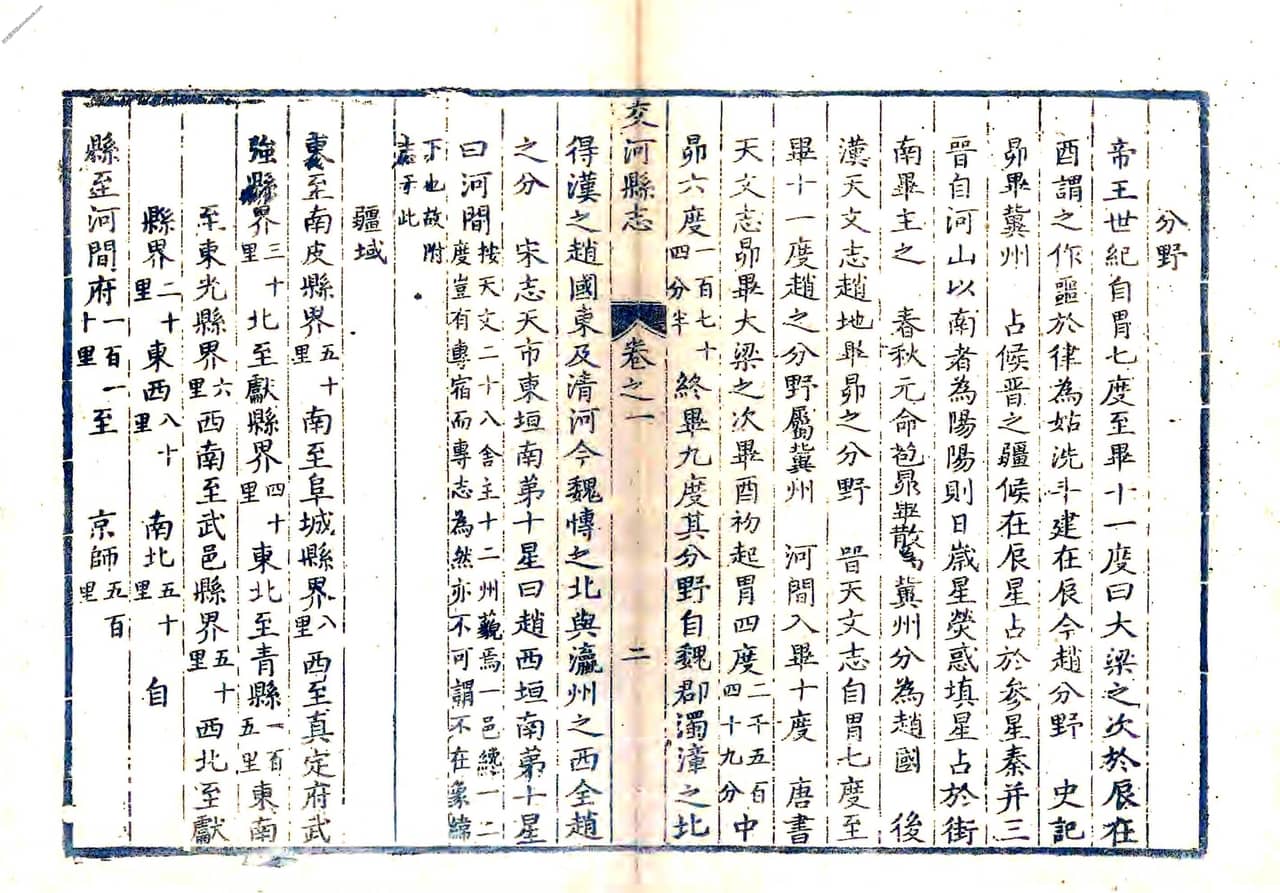 分野
帝王世紀自胃七度至畢十一度曰大梁之次於辰在
酉謂之作噩於律為姑洗斗建在辰今趙分野　史記
昴畢冀州　占候晉之疆候在辰星占於參星秦并三
晉自河山以南者為陽陽則日歲星熒惑填星占於街
南畢主之　春秋元命苞昴畢散為冀州分為趙國　後
漢天文志趙地畢昴之分野　晉天文志自胃七度至
畢十一度趙之分野屬冀州　河間入畢十度　唐書
天文志昴畢大梁之次畢酉初起胃四度二千五百四十九分中
昴六度一百七十四分半終畢九度其分野自魏郡濁漳之北
交河縣志　卷之一　二
得漢之趙國東及清河今魏慱之北與瀛州之西全趙
之分　宋志天市東垣南苐十星曰趙西垣南苐十星
曰河間按天文二十八舍主十二州藐焉一邑纔一二度豈有專宿而專志為然亦不可謂不在象緯
下也故附志于此
疆域
東至南皮縣界五十里南至阜城縣界八里西至真定府武
強縣界三十里北至獻縣界四十里東北至青縣一百五里東南
至東光縣界六里西南至武邑縣界五十里西北至獻
縣界二十里東西八十里南北五十里自
縣至河間府一百一十里至　京師五百里